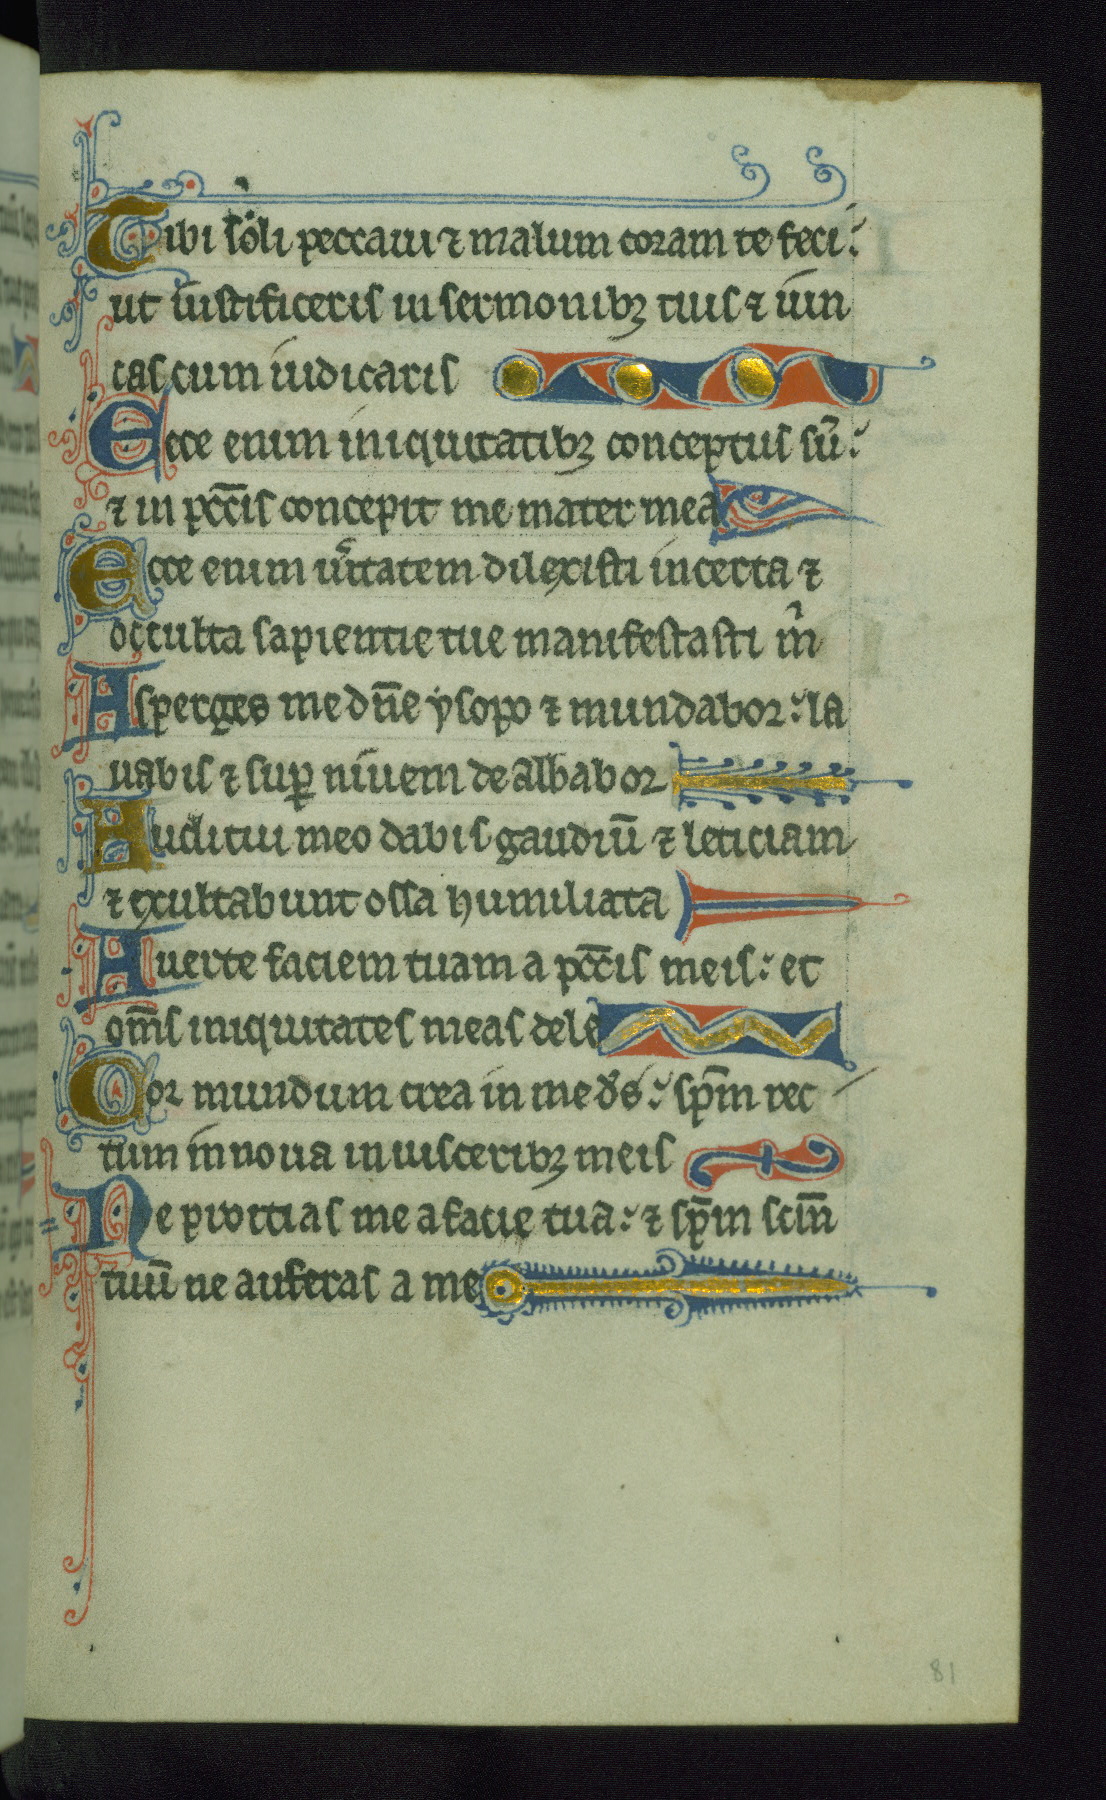 Tibi soli peccaui ⁊ malum coram te feci:
ut iustificeris in sermonibꝫ tuis ⁊ uin
cas cum iudicaris
Ecce enim iniquitatibꝫ conceptus sū:
⁊ in pcc̄is concepit me mater mea
Ecce enim ũitatem dilexisti incerta ⁊
occulta sapientie tue manifestasti m̄
Asperges me dn̄e ysopo ⁊ mundabor: la
uabis ⁊ suꝑ niuem dealbabor
Auditui meo dabis gaudiū ⁊ leticiam
⁊ exultabunt ossa humiliata
Auerte faciem tuam a pcc̄is meis: et
om̄s iniquitates meas dele
Cor mundum crea in me ds̄: sp̄m rec
tum innoua in uisceribꝫ meis
Ne proicias me a facie tua: ⁊ sp̄m scm̄
tuū ne auferas a me
81